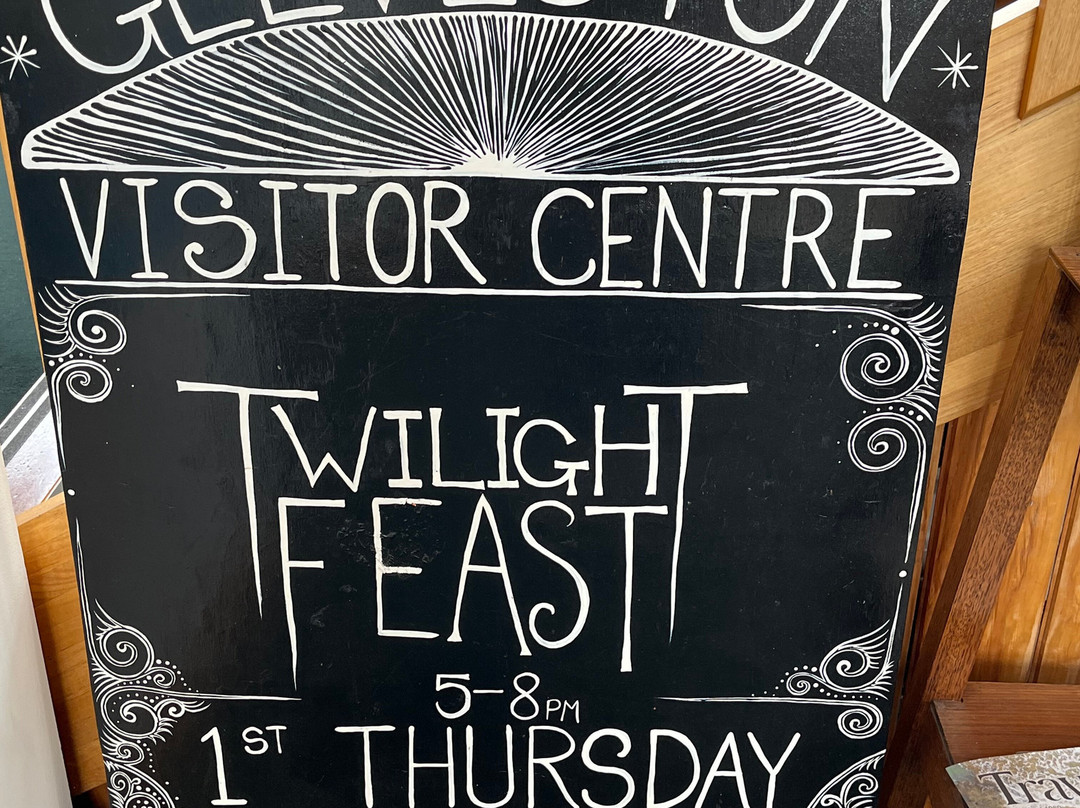 GEEVESTON
VISITOR CENTRE
TWILIGHT
FEAST
5-8PM
1ST THURSDAY
Tra